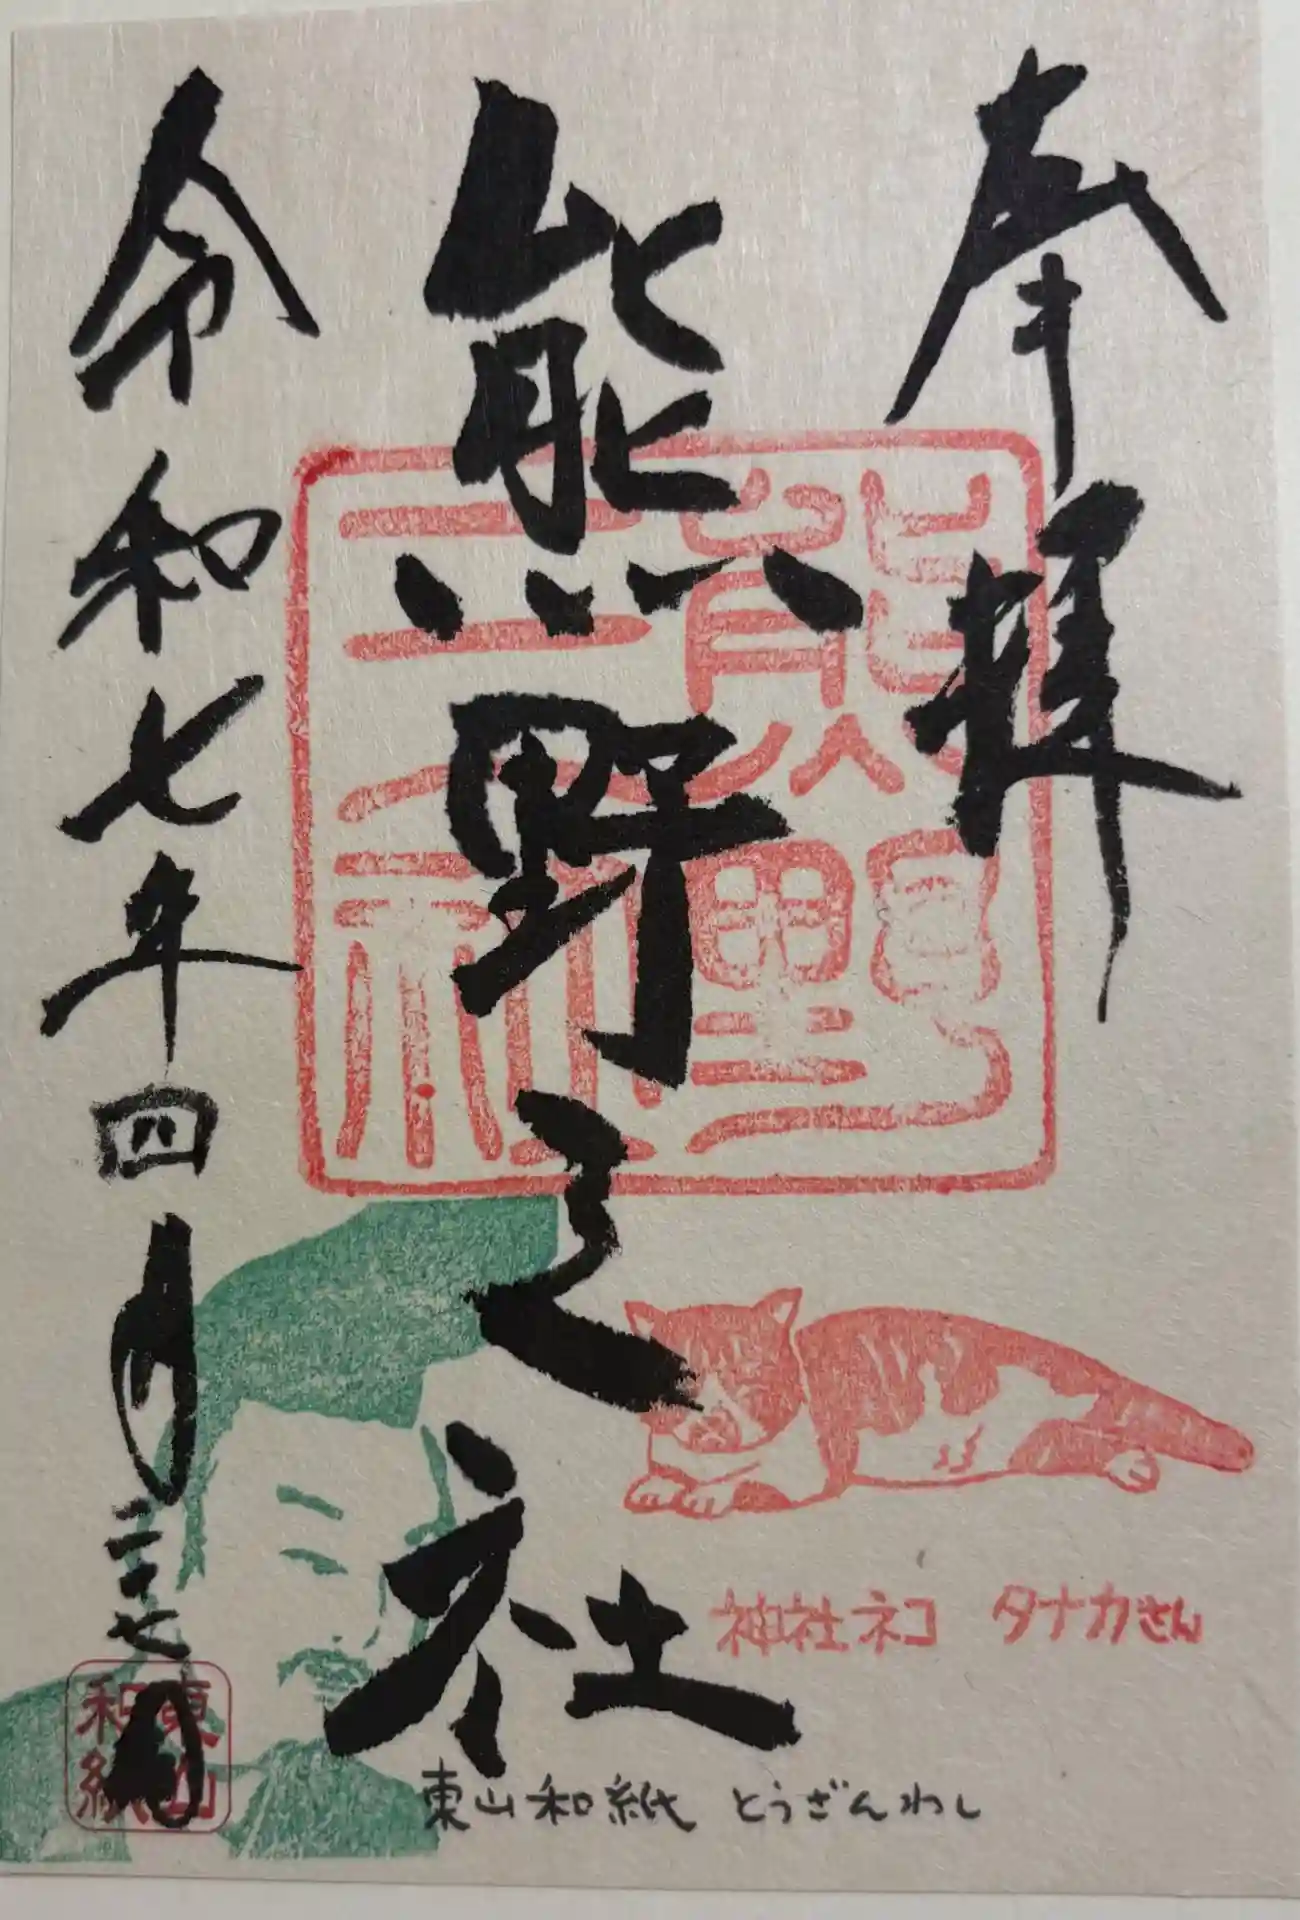 奉拝
熊野之社
令和七年四月二十七日
熊野三社
神社ネコ タナカさん
東山和紙
東山和紙 とうざんわし